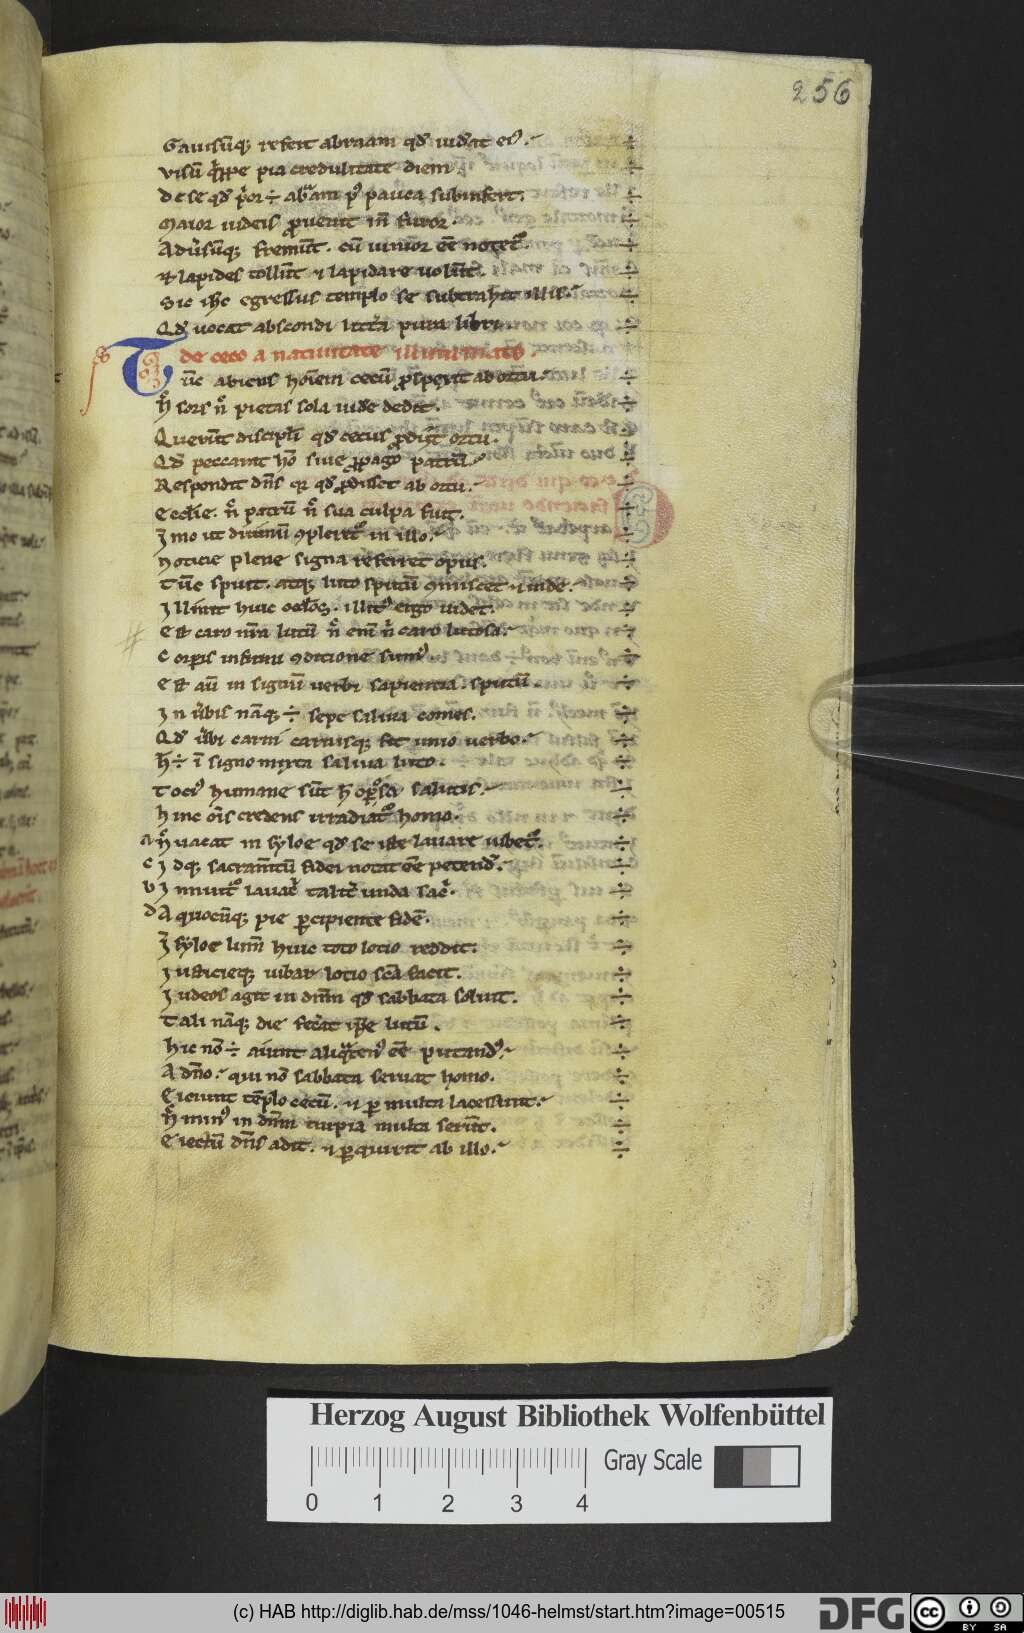 256
Gauisūq; refert abraam qđ uiđat ei⁹.
Visū q̄ppe pia credulitate diem
De se qđ p̄or ÷ abͣam p⁹ pauca subinfert.
Maior iudeis ꝓuenit in̄ furor.
Aduͥsūq; fremūt. cū iunior eē notet᷑
et lapides tollūt ⁊ lapidare uolūt.
Sic ihc egressus templo se subtrahit illis.
Qđ uocat abscondi litt̄a pura libri.
de ceco a natiuitate illuminato
Tūc abiens hoīem cecū ꝓspexit ab ortu.
h̄ sors n̄ pietas sola uiđe dedit.
Querūt discipl̄i qđ cecus ꝓdiit ortu.
Qđ peccauit hō siue ꝓpago patrū
Respondit dn̄s qr qđ ꝓdisset ab ortu.
Ecclīe. n̄ patrū n̄ sua culpa fuit.
Imo ut diuinū ꝯpleret᷑ in illo.
Noticie plene signa referret opus.
Tūc spuit. atq; luto sputū ꝯmiscet ⁊ inde.
Illinit huic oclōs. illit⁹ ergo uidet.
Est caro nr̄a lutū n̄ eni̅ n̄ caro lutosa.
Corꝑis infirmi ꝯditione sum⁹
Est aū in signū uerbi sapientia. sputū.
In uͥbis nāq; ÷ sepe saliua comes.
Qđ uͥbi carni carnisq; fit unio uerbo.
h̄ ÷ ī signo mixta saliua luto.
Toci⁹ humane sūt h̄ oꝑosa salutis.
Hinc oīs credens irradiat᷑ homo.
a n̄ uacat in syloe qđ se iste lauare iubet᷑.
c Idq; sacramtū fidei notat eē petend᷑.
b Innuit᷑ lauac̄ talit̄ unda sac̄.
d A quocūq; pie ꝑcipiente fidē.
I syloe lum̄ huic toto lotio reddit.
Iusticieq; iubar lotio scā facit.
Iudeos agit in dmn̄ qđ sabbata soluit.
Tali nāq; die fec̄at ip̄e lutū.
Hic nō ÷ aiunt aliqͣten⁹ eē putand⁹.
A dn̄o. qui nō sabbata seruat homo.
Eiciunt tēplo cecū. ⁊ ꝑ multa lacessunt.
n̄ min⁹ in dnm̄ turpia multa serūt.
Eiectū dn̄s adit. ⁊ ꝑquirit ab illo.
Herzog August Bibliothek Wolfenbüttel
Gray Scale
0 1 2 3 4
(c) HAB http://diglib.hab.de/mss/1046-helmst/start.htm?image=00515
DFG
cc BY SA